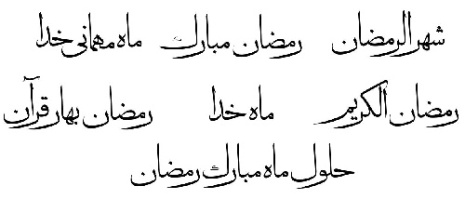 شهر الرمضان رمضان مبارک ماه مهمانی خدا
رمضان الکریم ماه خدا رمضان بهار قرآن
حلول ماه مبارک رمضان